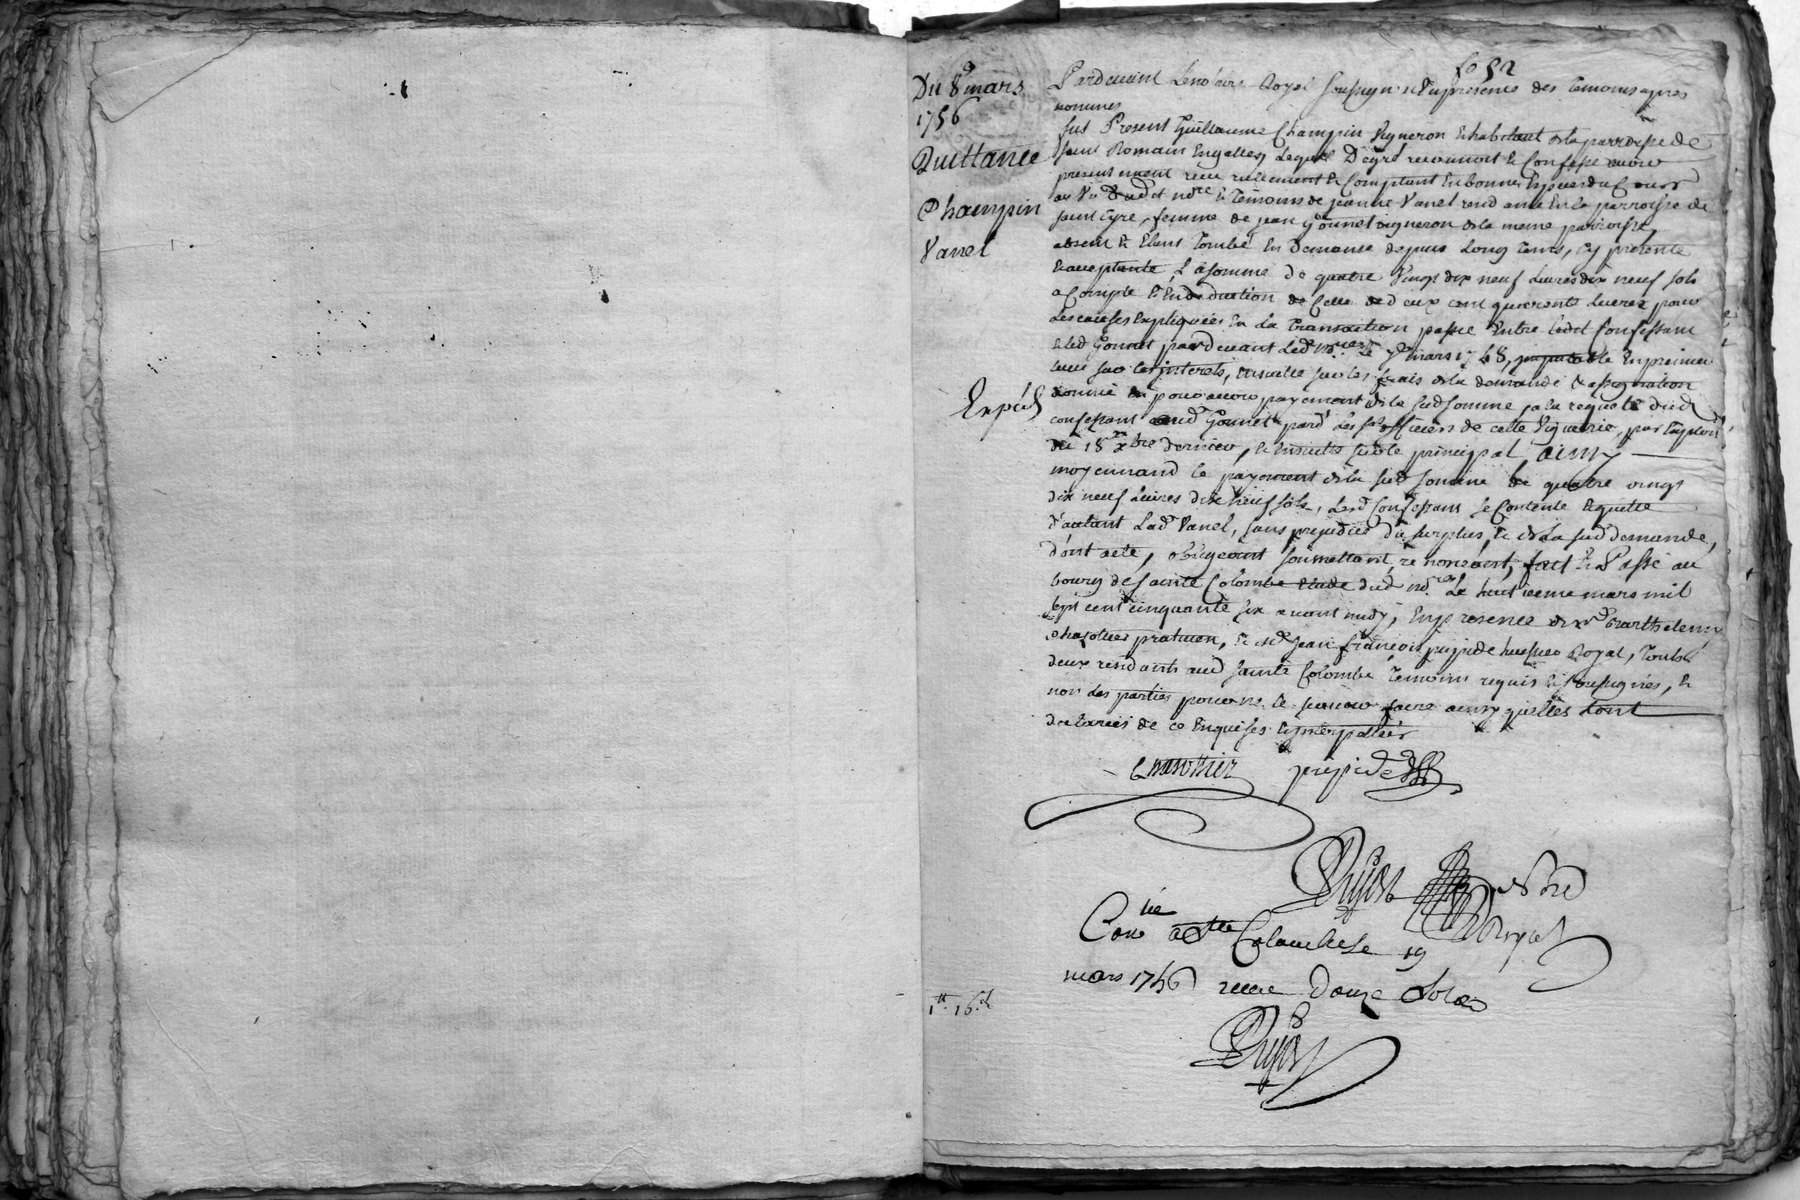 fo 52
Du 8e mars
1756
Quittance
Champin
Vanel
Expéd
Pardevant Le notaire Royal soussigné Et en presence des temoins apres
nommes
fut Present Guillaume Champin Vigneron & habitant de la parroisse de
saint Romain Engalles, Lequel De gré reconnoit & Confesse avoir
presentement receu reellement & Comptant En bonnes Especes du Cours
au Vu dudit nore & temoins de jeanne Vanel residante En la parroisse de
saint Cyre, femme de jean Gonnet vigneron de la meme parroisse
absent & Etant Tombé En Demance depuis Long tems, Cy presente
& acceptante, La somme de quatre Vingt dix neuf Livres dix neuf sols
a Compte & En deduction de Celle de deux cent quarente Livres pour
Les causes Expliquées En La Transaction passée Entre Ledit Confessant
& led Gonnet pardevant Led nore Le mars 1748, imputable En premier
lieu sur les interets, Ensuitte sur les frais de la demande & assignation
donnée pour avoir payement de la sudd somme a la requete dud
confessant aud Gonnet pard Les srs officiers de cette Viguerie, par Exploit
du 18 xbre dernier, & Ensuitte sur le principal, ainsy
moyennand le payement de la sud somme de quatre vingt
dix neuf Livres dix neuf sols, Led Confessant se Contente & quitte
d'autant Lad Vanel, sans prejudice du surplus, & de La sud demande,
dont acte, obligeant soumettant, renonçant, fait & Passé au
bourg de sainte Colombe Etude dud nore Le huitieme mars mil
sept cent cinquante six avant midy, En presence de Barthelemy
Chasottier praticien, & de jean françois prepide huissier Royal, Touts
deux residants aud sainte Colombe temoins requis & soussignés, &
non les parties pour ne le scavoir faire ainsy quelles Lont
declarées de ce Enquises & interpellées
prepide
Dujast nore
Royal
Conlé a Ste Colombe le 19
mars 1756 receu Douze Sols
1tt 16s
Dujast